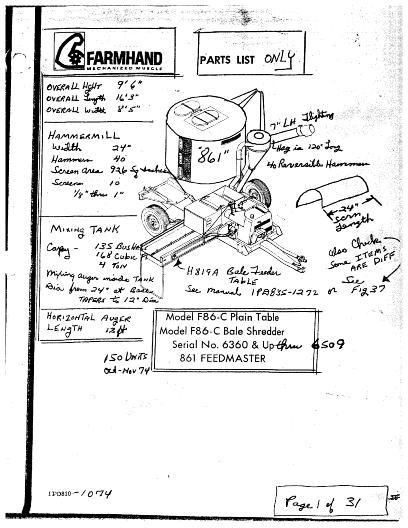 FARMHAND
MECHANIZED MUSCLE
PARTS LIST ONLY
OVERALL HGHT 9'6"
OVERALL Length 16'3"
OVERALL Width 8'5"
HAMMERMILL
Width 24"
Hammers 40
Screen area 926 Sq Inches
Screens 10
1/8" thru 1"
"861"
7" LH Flighting
Hag is 120" Long
40 Reversible Hammers
24"
Scrn
Length
MIXING TANK
Capcy 135 Bushel
168 Cubic
4 Ton
Mixing auger inside TANK
Dia from 24" at Base
TAPERS to 12" Dia
H819A Bale Feeder
TABLE
See manual 1PD835-1272 or See
Fig 37
Also Check
Some ITEMS
ARE DIFF
HORIZONTAL AUGER
LENGTH 12 ft
Model F86-C Plain Table
Model F86-C Bale Shredder
Serial No. 6360 & Up thru 6509
861 FEEDMASTER
150 UNITS
Oct-Nov 74
1PD810-1074
Page 1 of 31